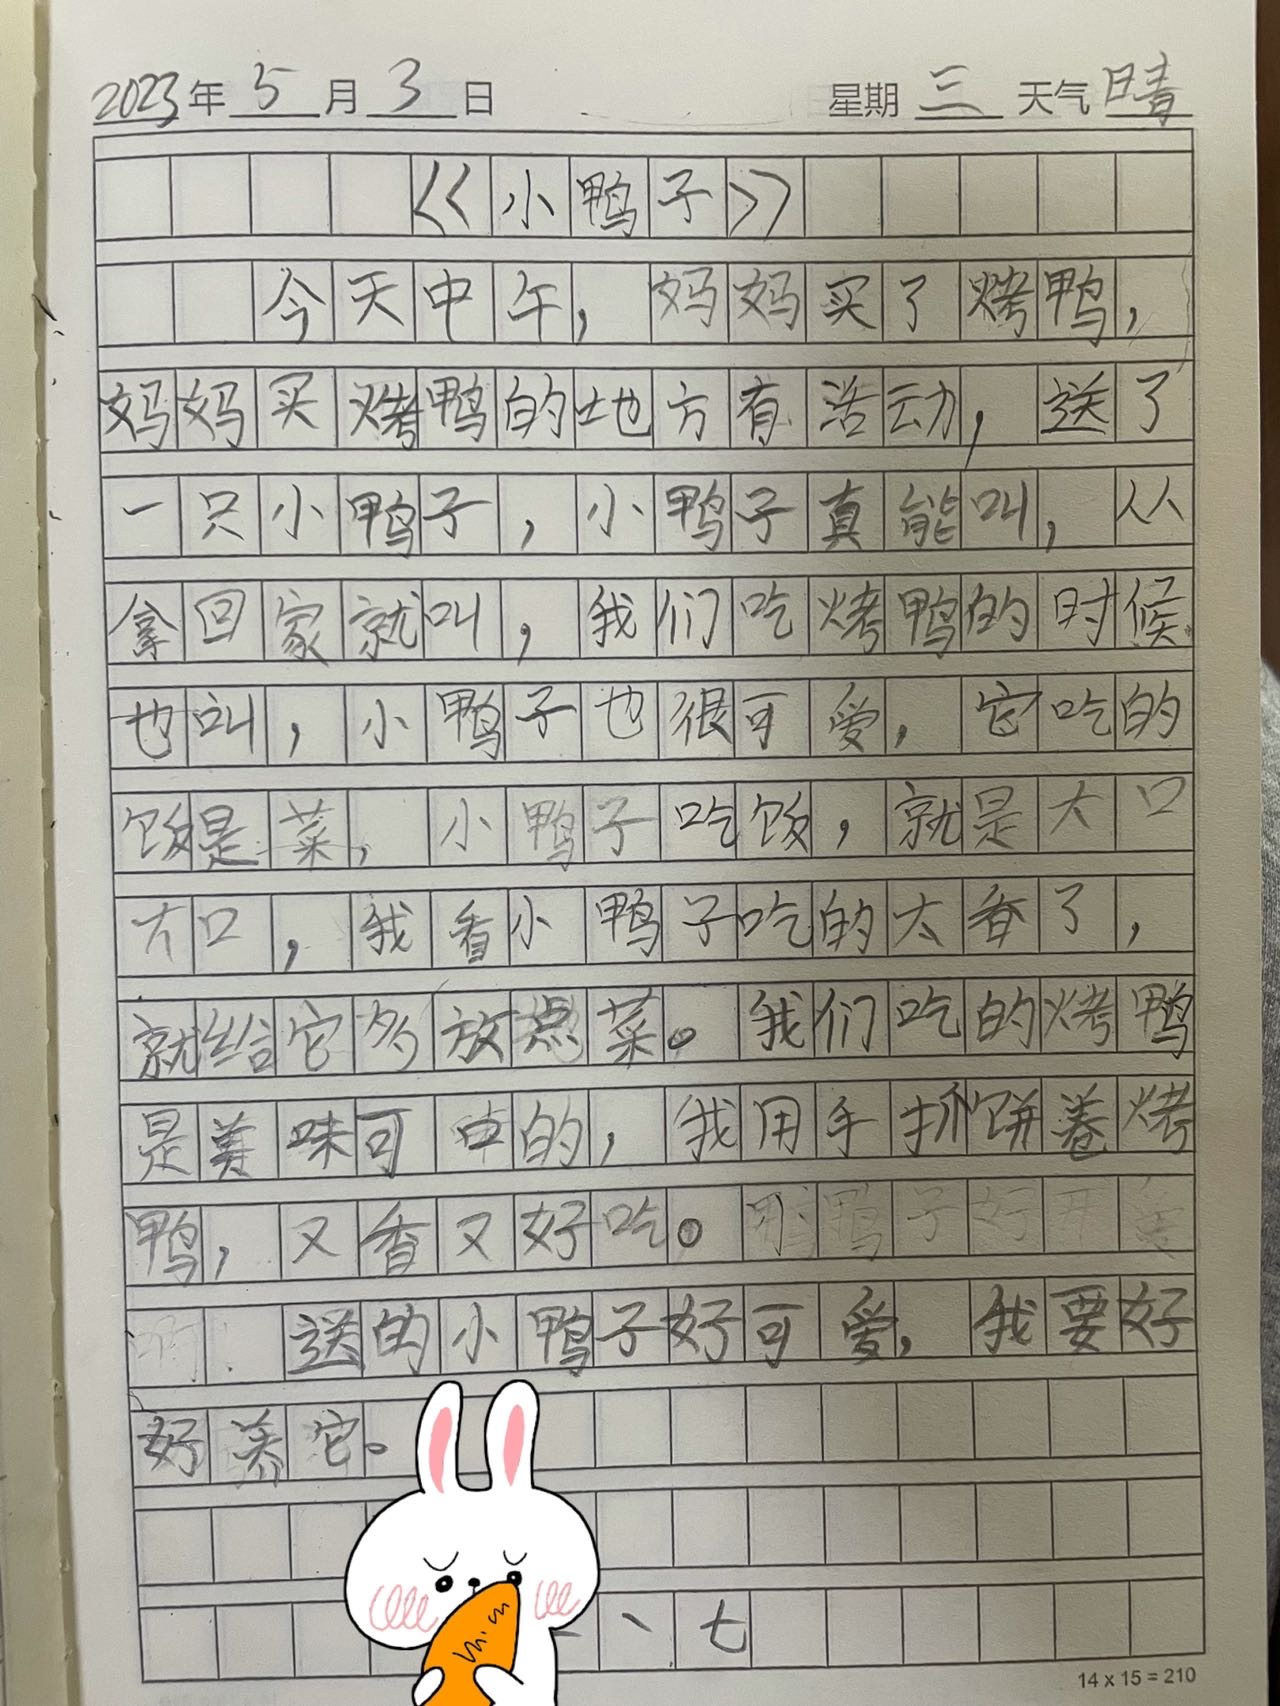 2023年5月3日 星期三 天气晴
《小鸭子》
今天中午，妈妈买了烤鸭，
妈妈买烤鸭的地方有活动，送了
一只小鸭子，小鸭子真能叫，从
拿回家就叫，我们吃烤鸭的时候
也叫，小鸭子也很可爱，它吃的
饭是菜，小鸭子吃饭，就是大口
大口，我看小鸭子吃的太香了，
就给它多放点菜。我们吃的烤鸭
是美味可中的，我用手抓饼卷烤
鸭，又香又好吃。
送的小鸭子好可爱，我要好
好养它。
、七
14 x 15 = 210